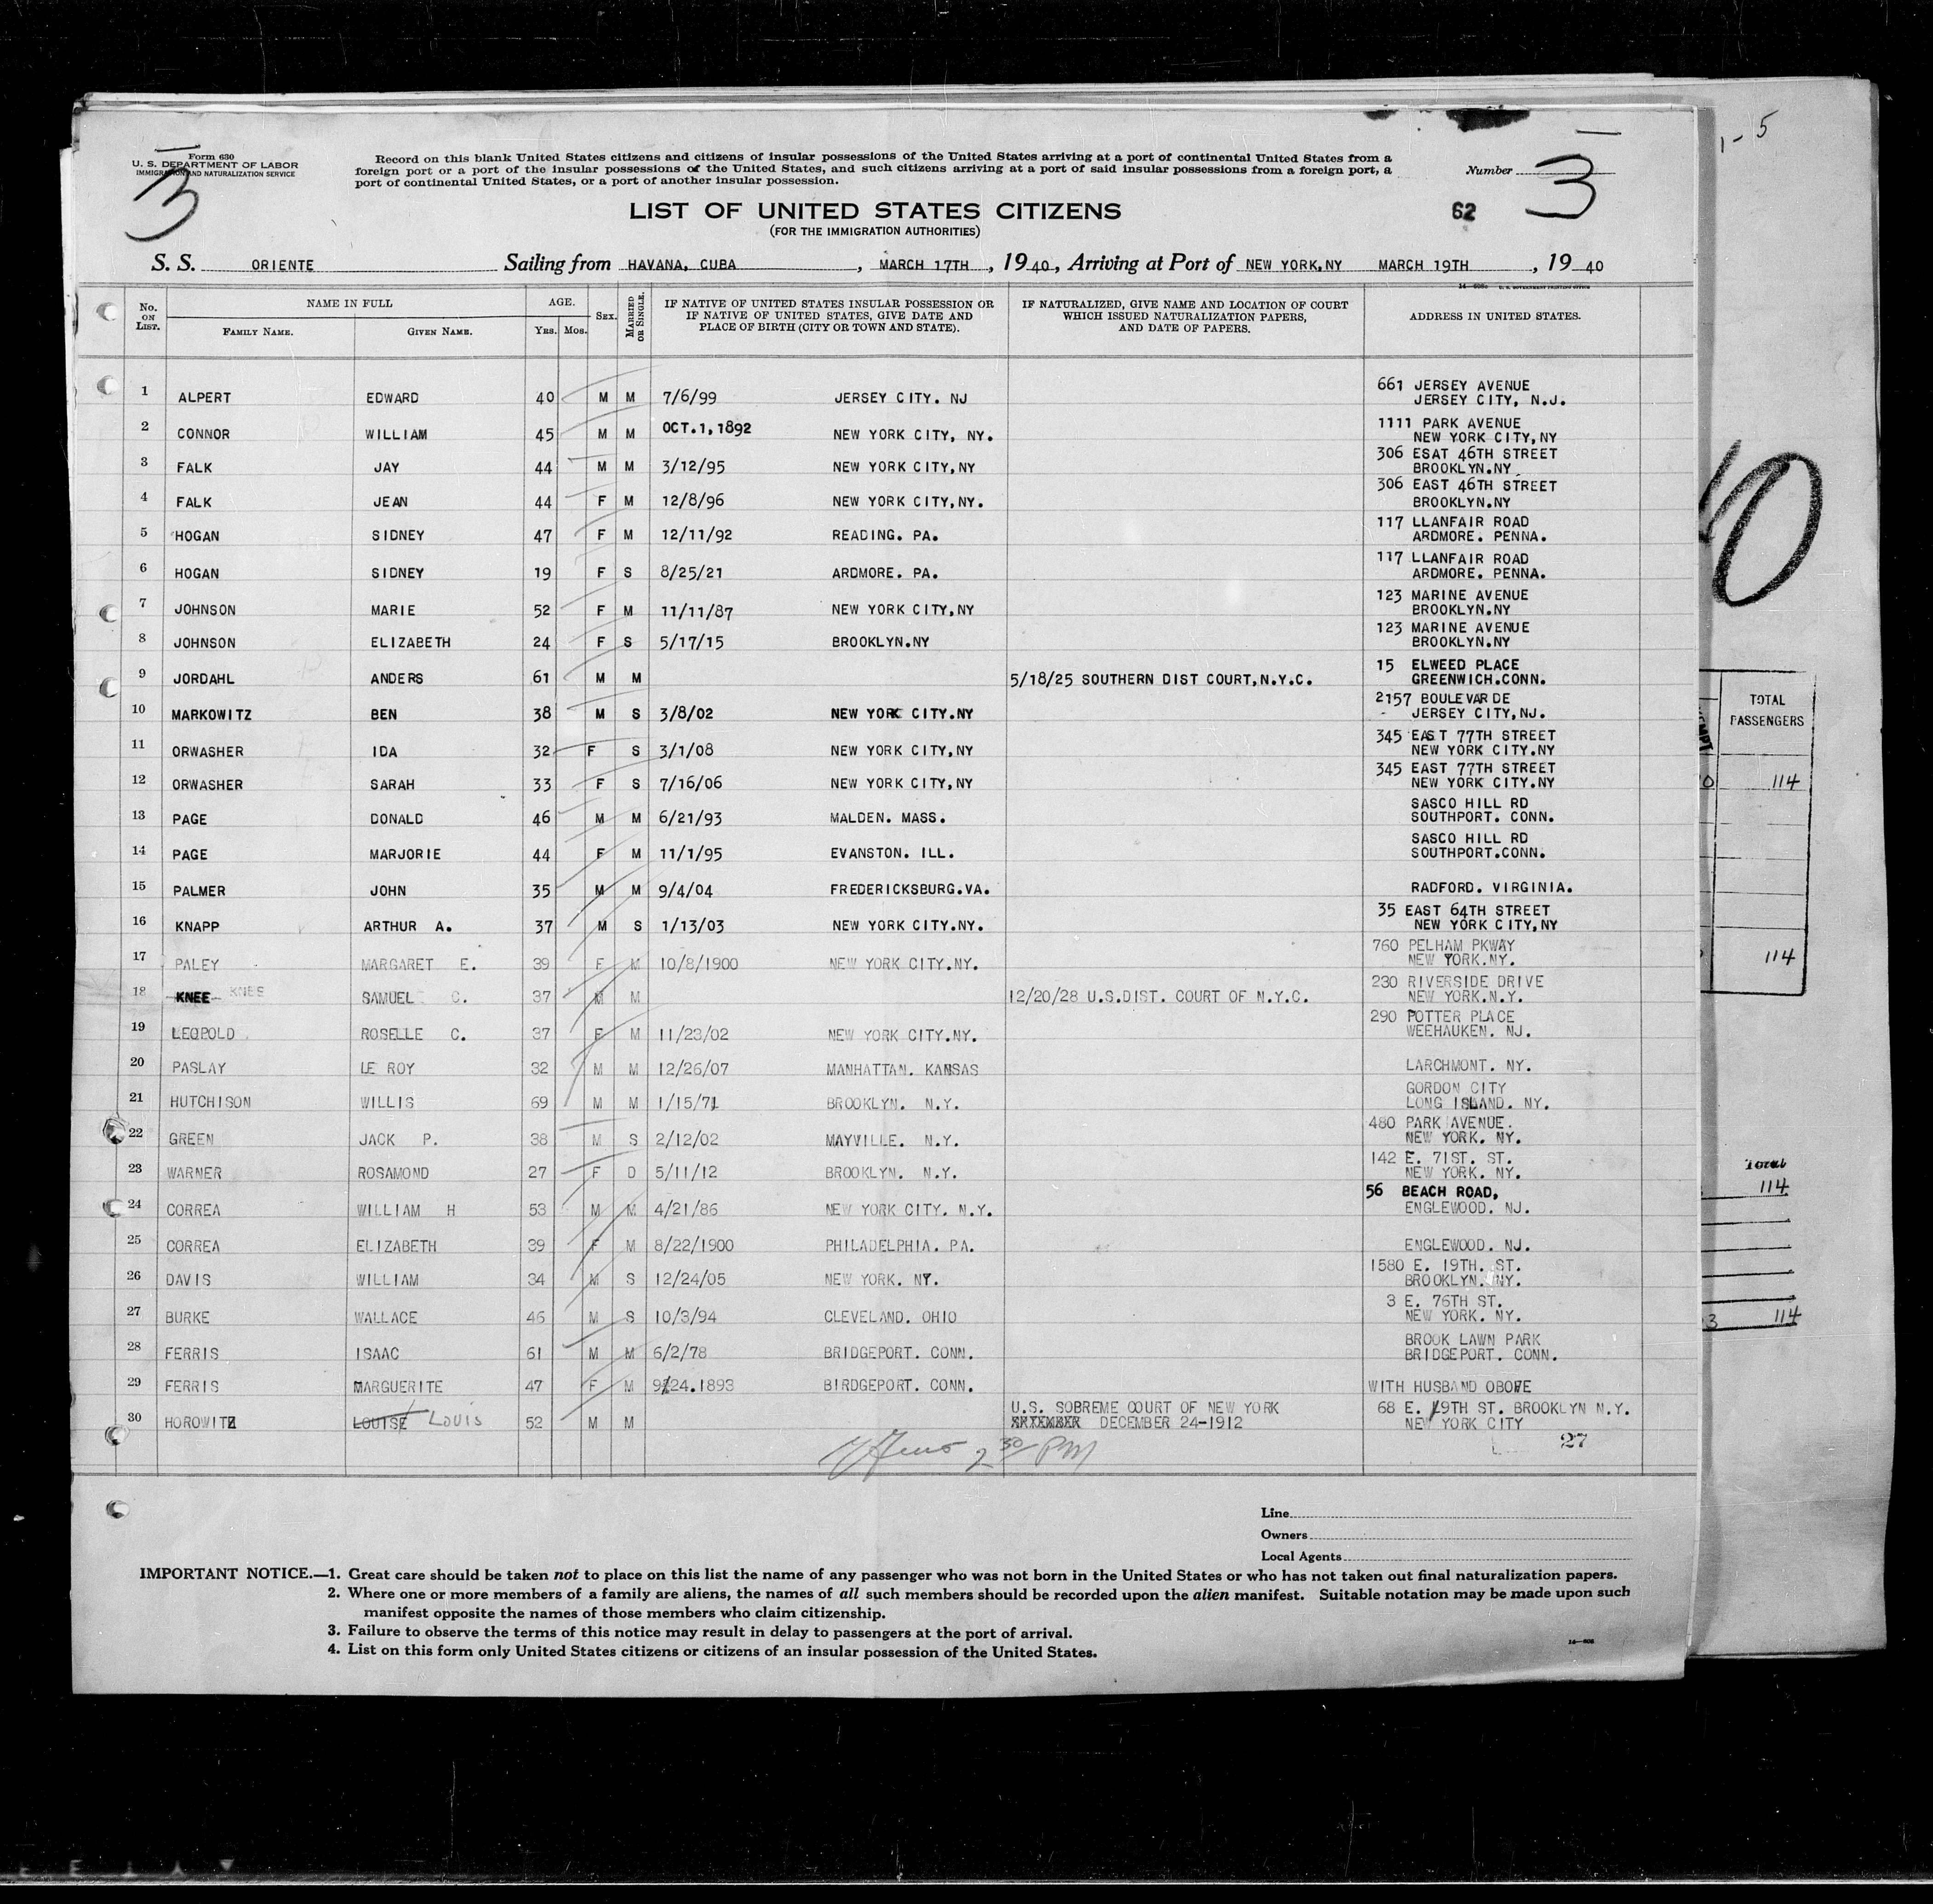 Form 630
U. S. DEPARTMENT OF LABOR
IMMIGRATION AND NATURALIZATION SERVICE
3
Record on this blank United States citizens and citizens of insular possessions of the United States arriving at a port of continental United States from a
foreign port or a port of the insular possessions of the United States, and such citizens arriving at a port of said insular possessions from a foreign port, a
port of continental United States, or a port of another insular possession.
Number 3
1-5
LIST OF UNITED STATES CITIZENS
62
(FOR THE IMMIGRATION AUTHORITIES)
S. S. ORIENTE Sailing from HAVANA, CUBA, MARCH 17TH, 1940, Arriving at Port of NEW YORK,NY MARCH 19TH, 19 40
No. ON LIST. NAME IN FULL FAMILY NAME. GIVEN NAME. AGE. YRS. MOS. SEX. MARRIED OR SINGLE. IF NATIVE OF UNITED STATES INSULAR POSSESSION OR IF NATIVE OF UNITED STATES, GIVE DATE AND PLACE OF BIRTH (CITY OR TOWN AND STATE). IF NATURALIZED, GIVE NAME AND LOCATION OF COURT WHICH ISSUED NATURALIZATION PAPERS, AND DATE OF PAPERS. ADDRESS IN UNITED STATES.
1 ALPERT EDWARD 40 M M 7/6/99 JERSEY CITY. NJ 661 JERSEY AVENUE
JERSEY CITY, N.J.
2 CONNOR WILLIAM 45 M M OCT.1,1892 NEW YORK CITY, NY. 1111 PARK AVENUE
NEW YORK CITY,NY
3 FALK JAY 44 M M 3/12/95 NEW YORK CITY,NY 306 ESAT 46TH STREET
BROOKLYN.NY
4 FALK JEAN 44 F M 12/8/96 NEW YORK CITY,NY. 306 EAST 46TH STREET
BROOKLYN.NY
5 HOGAN SIDNEY 47 F M 12/11/92 READING. PA. 117 LLANFAIR ROAD
ARDMORE. PENNA.
6 HOGAN SIDNEY 19 F S 8/25/21 ARDMORE. PA. 117 LLANFAIR ROAD
ARDMORE. PENNA.
7 JOHNSON MARIE 52 F M 11/11/87 NEW YORK CITY,NY 123 MARINE AVENUE
BROOKLYN.NY
8 JOHNSON ELIZABETH 24 F S 5/17/15 BROOKLYN.NY 123 MARINE AVENUE
BROOKLYN.NY
9 JORDAHL ANDERS 61 M M 5/18/25 SOUTHERN DIST COURT,N.Y.C. 15 ELWEED PLACE
GREENWICH.CONN.
10 MARKOWITZ BEN 38 M S 3/8/02 NEW YORK CITY.NY 2157 BOULEVARDE
JERSEY CITY,NJ.
11 ORWASHER IDA 32 F S 3/1/08 NEW YORK CITY,NY 345 EAST 77TH STREET
NEW YORK CITY.NY
12 ORWASHER SARAH 33 F S 7/16/06 NEW YORK CITY,NY 345 EAST 77TH STREET
NEW YORK CITY.NY
13 PAGE DONALD 46 M M 6/21/93 MALDEN. MASS. SASCO HILL RD
SOUTHPORT. CONN.
14 PAGE MARJORIE 44 F M 11/1/95 EVANSTON. ILL. SASCO HILL RD
SOUTHPORT.CONN.
15 PALMER JOHN 35 M M 9/4/04 FREDERICKSBURG.VA. RADFORD. VIRGINIA.
16 KNAPP ARTHUR A. 37 M S 1/13/03 NEW YORK CITY.NY. 35 EAST 64TH STREET
NEW YORK CITY,NY
17 PALEY MARGARET E. 39 F M 10/8/1900 NEW YORK CITY.NY. 760 PELHAM PKWAY
NEW YORK.NY.
18 KNEE KNEE SAMUEL C. 37 M M 12/20/28 U.S.DIST. COURT OF N.Y.C. 230 RIVERSIDE DRIVE
NEW YORK.N.Y.
19 LEOPOLD ROSELLE C. 37 F M 11/23/02 NEW YORK CITY.NY. 290 POTTER PLACE
WEEHAUKEN. NJ.
20 PASLAY LE ROY 32 M M 12/26/07 MANHATTAN. KANSAS LARCHMONT. NY.
21 HUTCHISON WILLIS 69 M M 1/15/71 BROOKLYN. N.Y. GORDON CITY
LONG ISLAND. NY.
22 GREEN JACK P. 38 M S 2/12/02 MAYVILLE. N.Y. 480 PARK AVENUE.
NEW YORK. NY.
23 WARNER ROSAMOND 27 F D 5/11/12 BROOKLYN. N.Y. 142 E. 71ST. ST.
NEW YORK. NY.
24 CORREA WILLIAM H 53 M M 4/21/86 NEW YORK CITY. N.Y. 56 BEACH ROAD,
ENGLEWOOD. NJ.
25 CORREA ELIZABETH 39 F M 8/22/1900 PHILADELPHIA. PA. ENGLEWOOD. NJ.
26 DAVIS WILLIAM 34 M S 12/24/05 NEW YORK. NY. 1580 E. 19TH. ST.
BROOKLYN. NY.
27 BURKE WALLACE 46 M S 10/3/94 CLEVELAND. OHIO 3 E. 76TH ST.
NEW YORK. NY.
28 FERRIS ISAAC 61 M M 6/2/78 BRIDGEPORT. CONN. BROOK LAWN PARK
BRIDGEPORT. CONN.
29 FERRIS MARGUERITE 47 F M 9/24.1893 BIRDGEPORT. CONN. WITH HUSBAND OBOVE
30 HOROWITZ LOUISE LOUIS 52 M M U.S. SOBREME COURT OF NEW YORK
DECEMBER 24-1912 68 E. 19TH ST. BROOKLYN N.Y.
NEW YORK CITY
2 30 PM
27
Line
Owners
Local Agents
IMPORTANT NOTICE.—1. Great care should be taken not to place on this list the name of any passenger who was not born in the United States or who has not taken out final naturalization papers.
2. Where one or more members of a family are aliens, the names of all such members should be recorded upon the alien manifest. Suitable notation may be made upon such
manifest opposite the names of those members who claim citizenship.
3. Failure to observe the terms of this notice may result in delay to passengers at the port of arrival.
4. List on this form only United States citizens or citizens of an insular possession of the United States.
TOTAL
PASSENGERS
114
114
Total
114
114